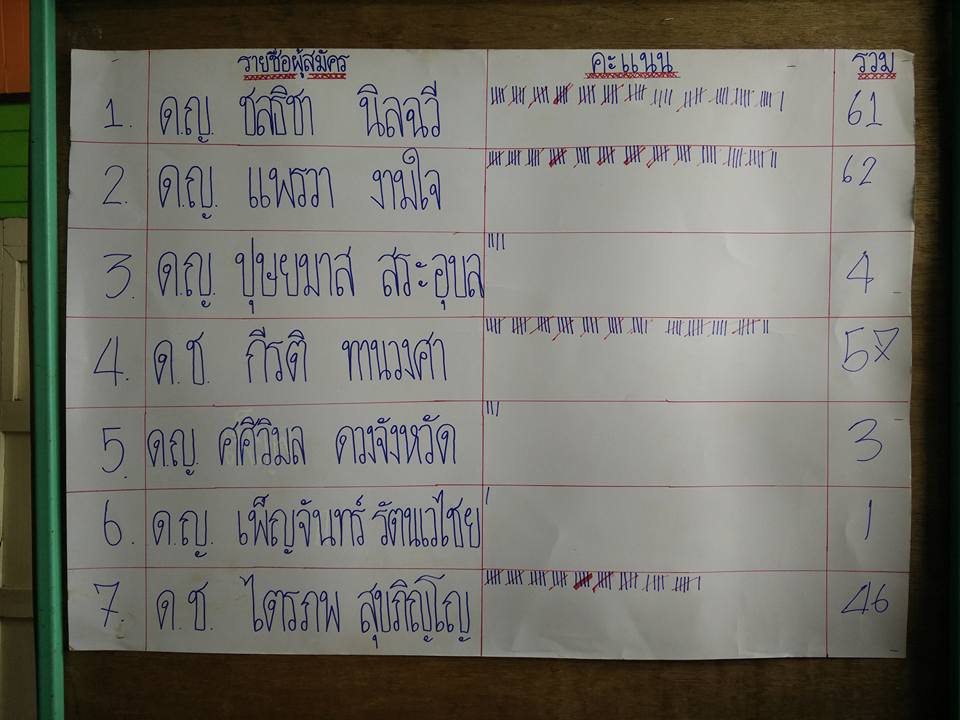 รายชื่อผู้สมัคร คะแนน รวม
1. ด.ญ. ชลธิชา นิลฉวี 61
2. ด.ญ. แพรวา งามใจ 62
3. ด.ญ. ปุษยมาส สระอุบล 4
4. ด.ช. กีรติ ทานวงศา 57
5. ด.ญ. ศศิวิมล ดวงจังหวัด 3
6. ด.ญ. เพ็ญจันทร์ รัตนเวไชย 1
7. ด.ช. ไตรภพ สุขภิญโญ 46